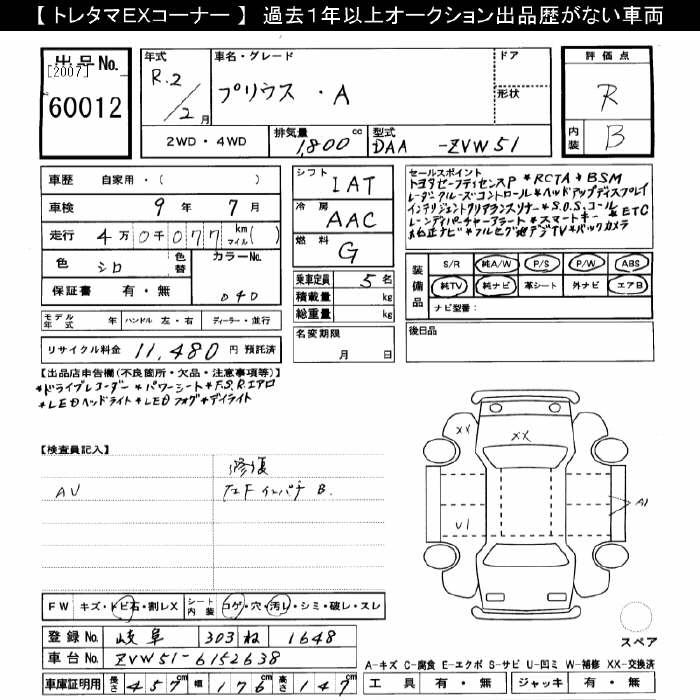 【 トレタマEXコーナー 】 過去1年以上オークション出品歴がない車両
出品No. [2007] 60012
年式 R.2/2月
車名・グレード プリウス・A
ドア
形状
評価点 R
内装 B
2WD・4WD
排気量 1,800cc
型式 DAA-ZVW51
車歴 自家用・( )
車検 9年 7月
走行 4万0千077 km マイル( )
色 シロ
色替
カラーNo. 040
保証書 有・無
モデル年式 年
ハンドル 左・右
ディーラー・並行
リサイクル料金 11,480円 預託済
シフト IAT
冷房 AAC
燃料 G
乗車定員 5名
積載量 kg
総重量 kg
名変期限 月 日
セールスポイント
トヨタセーフティセンスP *RCTA *BSM
レーダクルーズコントロール *ヘッドアップディスプレイ
インテリジェントクリアランスソナー *S.O.Sコール
レーンディパーチャーアラート *スマートキー *ETC
*純正ナビ *フルセグ地デジTV *バックカメラ
装備品
S/R 純A/W P/S P/W ABS
純TV 純ナビ 革シート 外ナビ エアB
ナビ型番:
後日品
【出品店申告欄(不良箇所・欠品・注意事項等)】
*ドライブレコーダー *パワーシート *F.S.Rエアロ
*LEDヘッドライト *LEDフォグ *デイライト
【検査員記入】
AU
修復
左FインパチB.
XX
XX
U1
A1
FW キズ・トビ石・割レX
シート内装 コゲ・穴・汚レ・シミ・破レ・スレ
登録No. 岐阜 303 ね 1648
車台No. ZVW51-6152638
車庫証明用 長さ 457cm 幅 176cm 高さ 147cm
スペア
A-キズ C-腐食 E-エクボ S-サビ U-凹ミ W-補修 XX-交換済
工具 有・無 ジャッキ 有・無